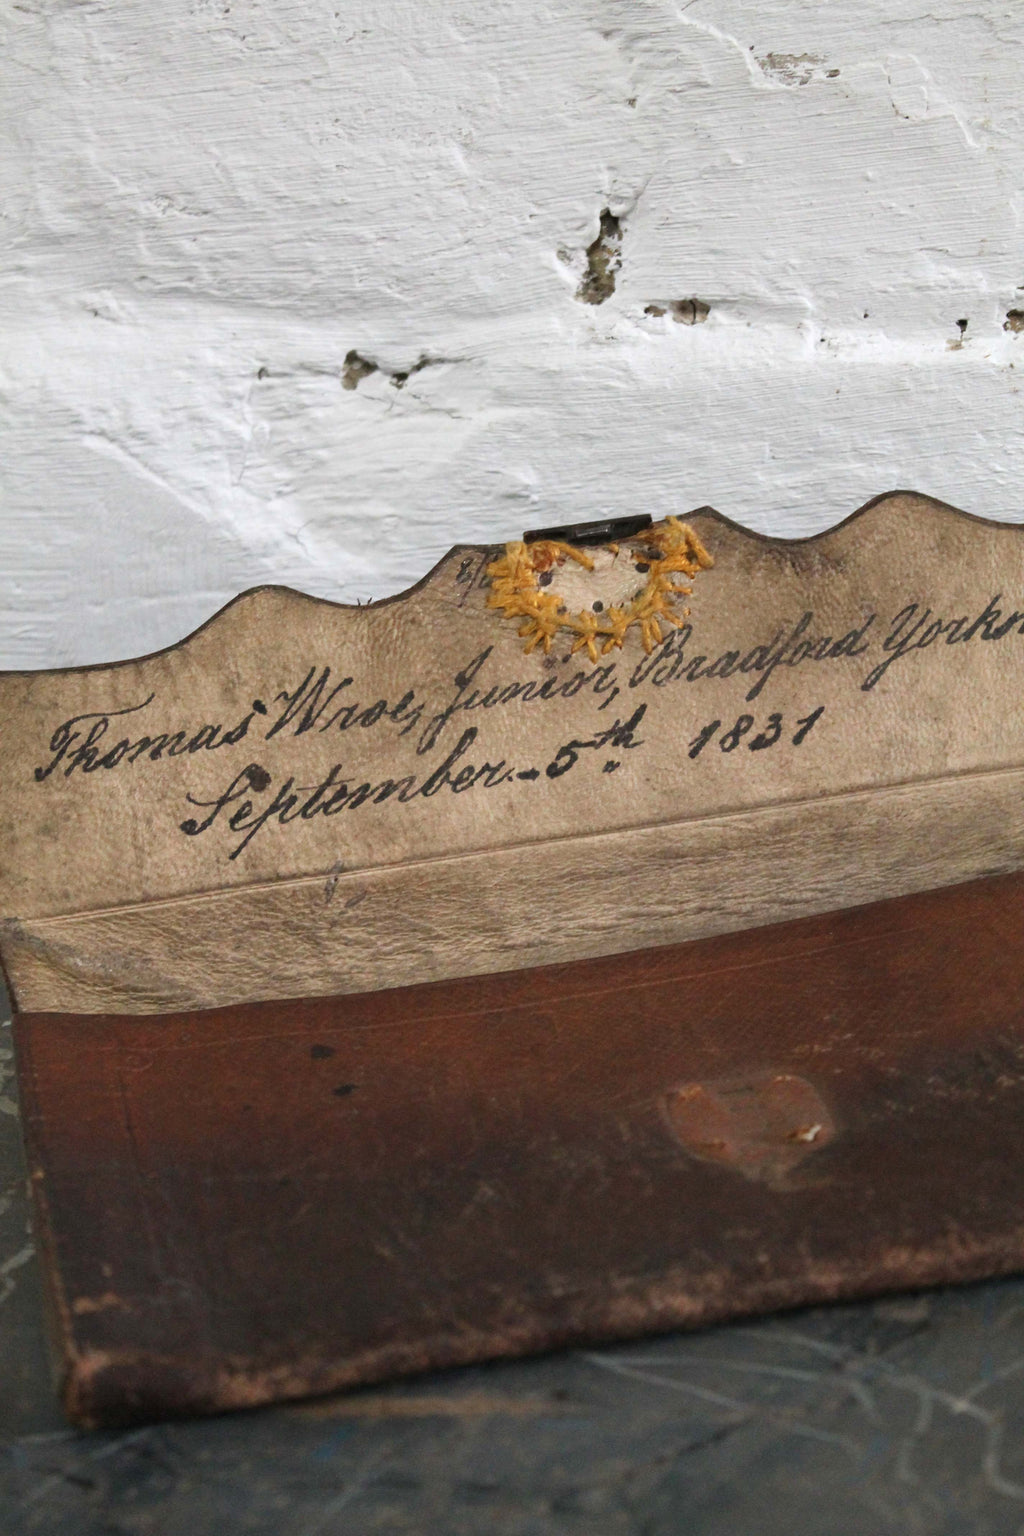 Thomas Wroe, Junior, Bradford
September 5th 1831